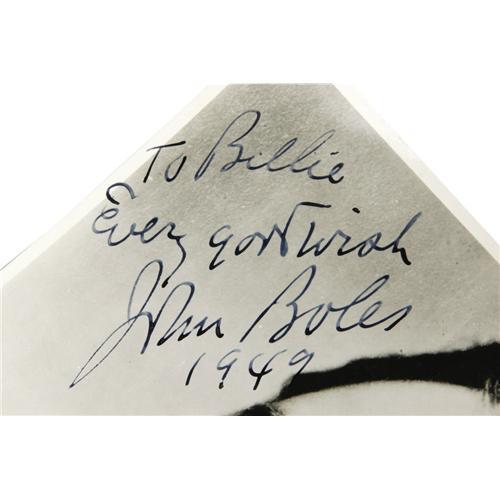 To Billie
Every good wish
John Boles
1949